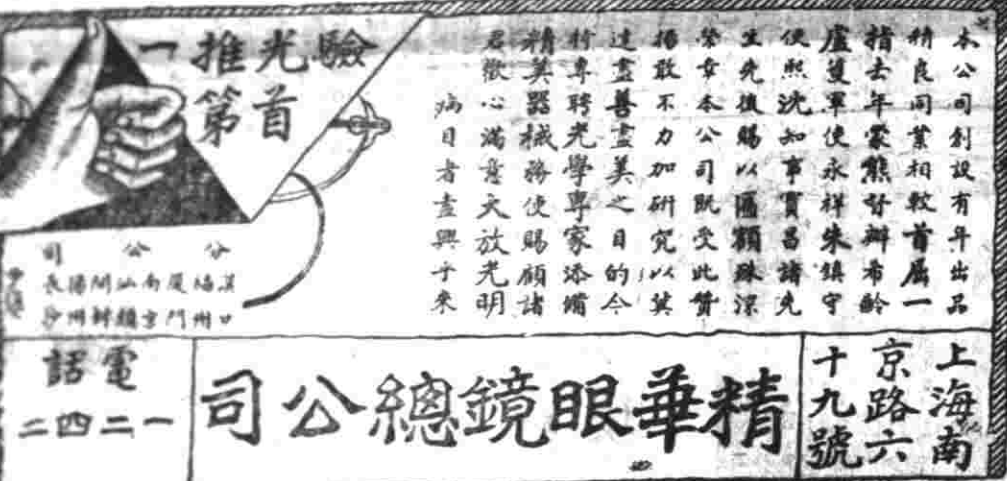 驗光推
首
一
第
本公司創設有年出品
精良同業相較首屈一
指去年蒙熊督辦希齡
盧護軍使永祥朱鎮守
使熙沈知事寶昌諸先
生先後賜以匾額殊深
榮幸本公司既受此贊
揚敢不力加研究以冀
達盡善盡美之目的今
特專聘光學專家添備
精美器械務使賜顧諸
君歡心滿意大放光明
病目者盍興乎來
分公司
漢口
福州
廈門
南京
汕頭
開封
長沙
上海南
京路六
十九號
精華眼鏡總公司
電話
一二四二